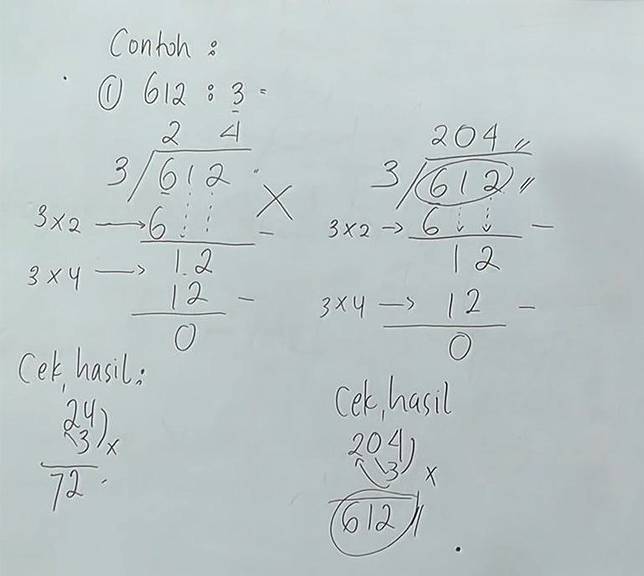 Contoh :
① 612 : 3 =
2 4
3 / 612
X
3x2 → 6 -
3x4 → 12
12 -
0
Cek, hasil :
24
3 x
72
204 //
3 / 612 //
3x2 → 6 -
12
3x4 → 12 -
0
Cek, hasil
204
3 x
612 //